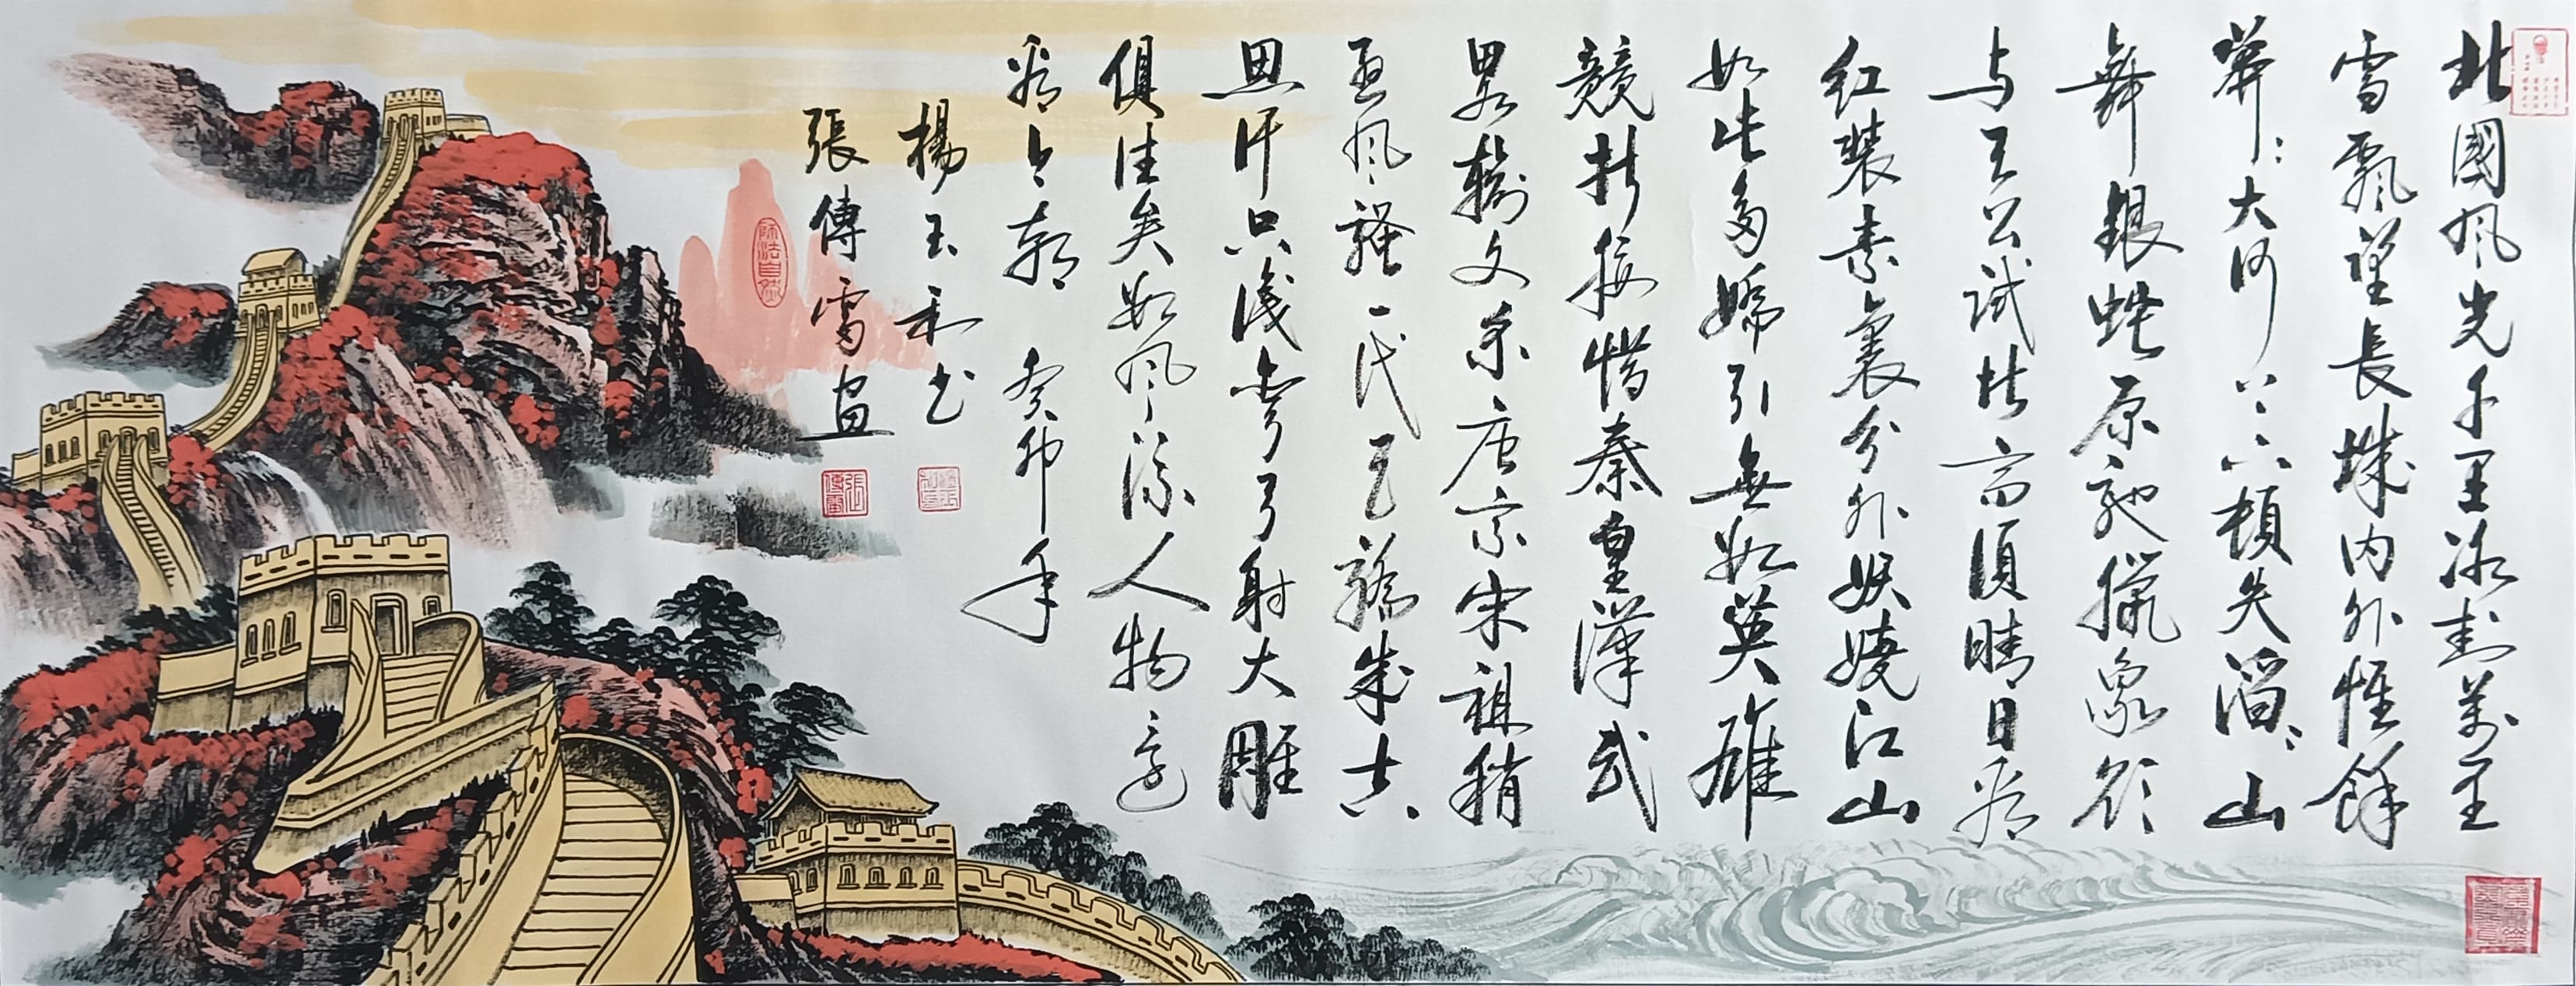 北國風光千里冰封萬里
雪飄望長城内外惟餘
莽:大河上下頓失滔:山
舞銀蛇原馳獵象欲
与天公試比高須晴日看
红裝素裹分外妖嬈江山
如此多嬌引無數英雄
競折腰惜秦皇漢武
畧輸文采唐宗宋祖稍
遜風騷一代天驕成吉
思汗只識彎弓射大雕
俱往矣數風流人物還
看今朝 癸卯年
楊玉和书
張傳雷畫
師法自然
張傳雷